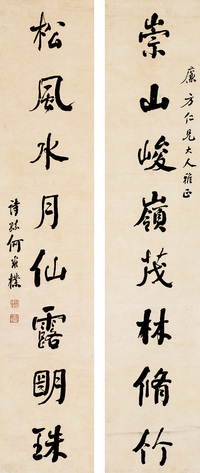 廉方仁兄大人雅正
崇山峻嶺茂林脩竹
松風水月仙露明珠
詩孫何維樸